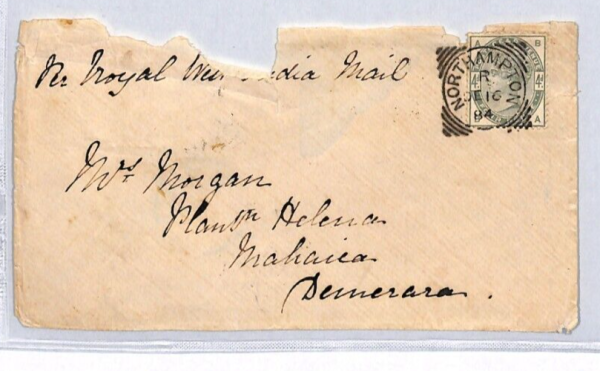 Per Royal West India Mail
NORTHAMPTON
R
SE 16
84
A B
B A
Mrs Morgan
Plantn Helena
Mahaica
Demerara.